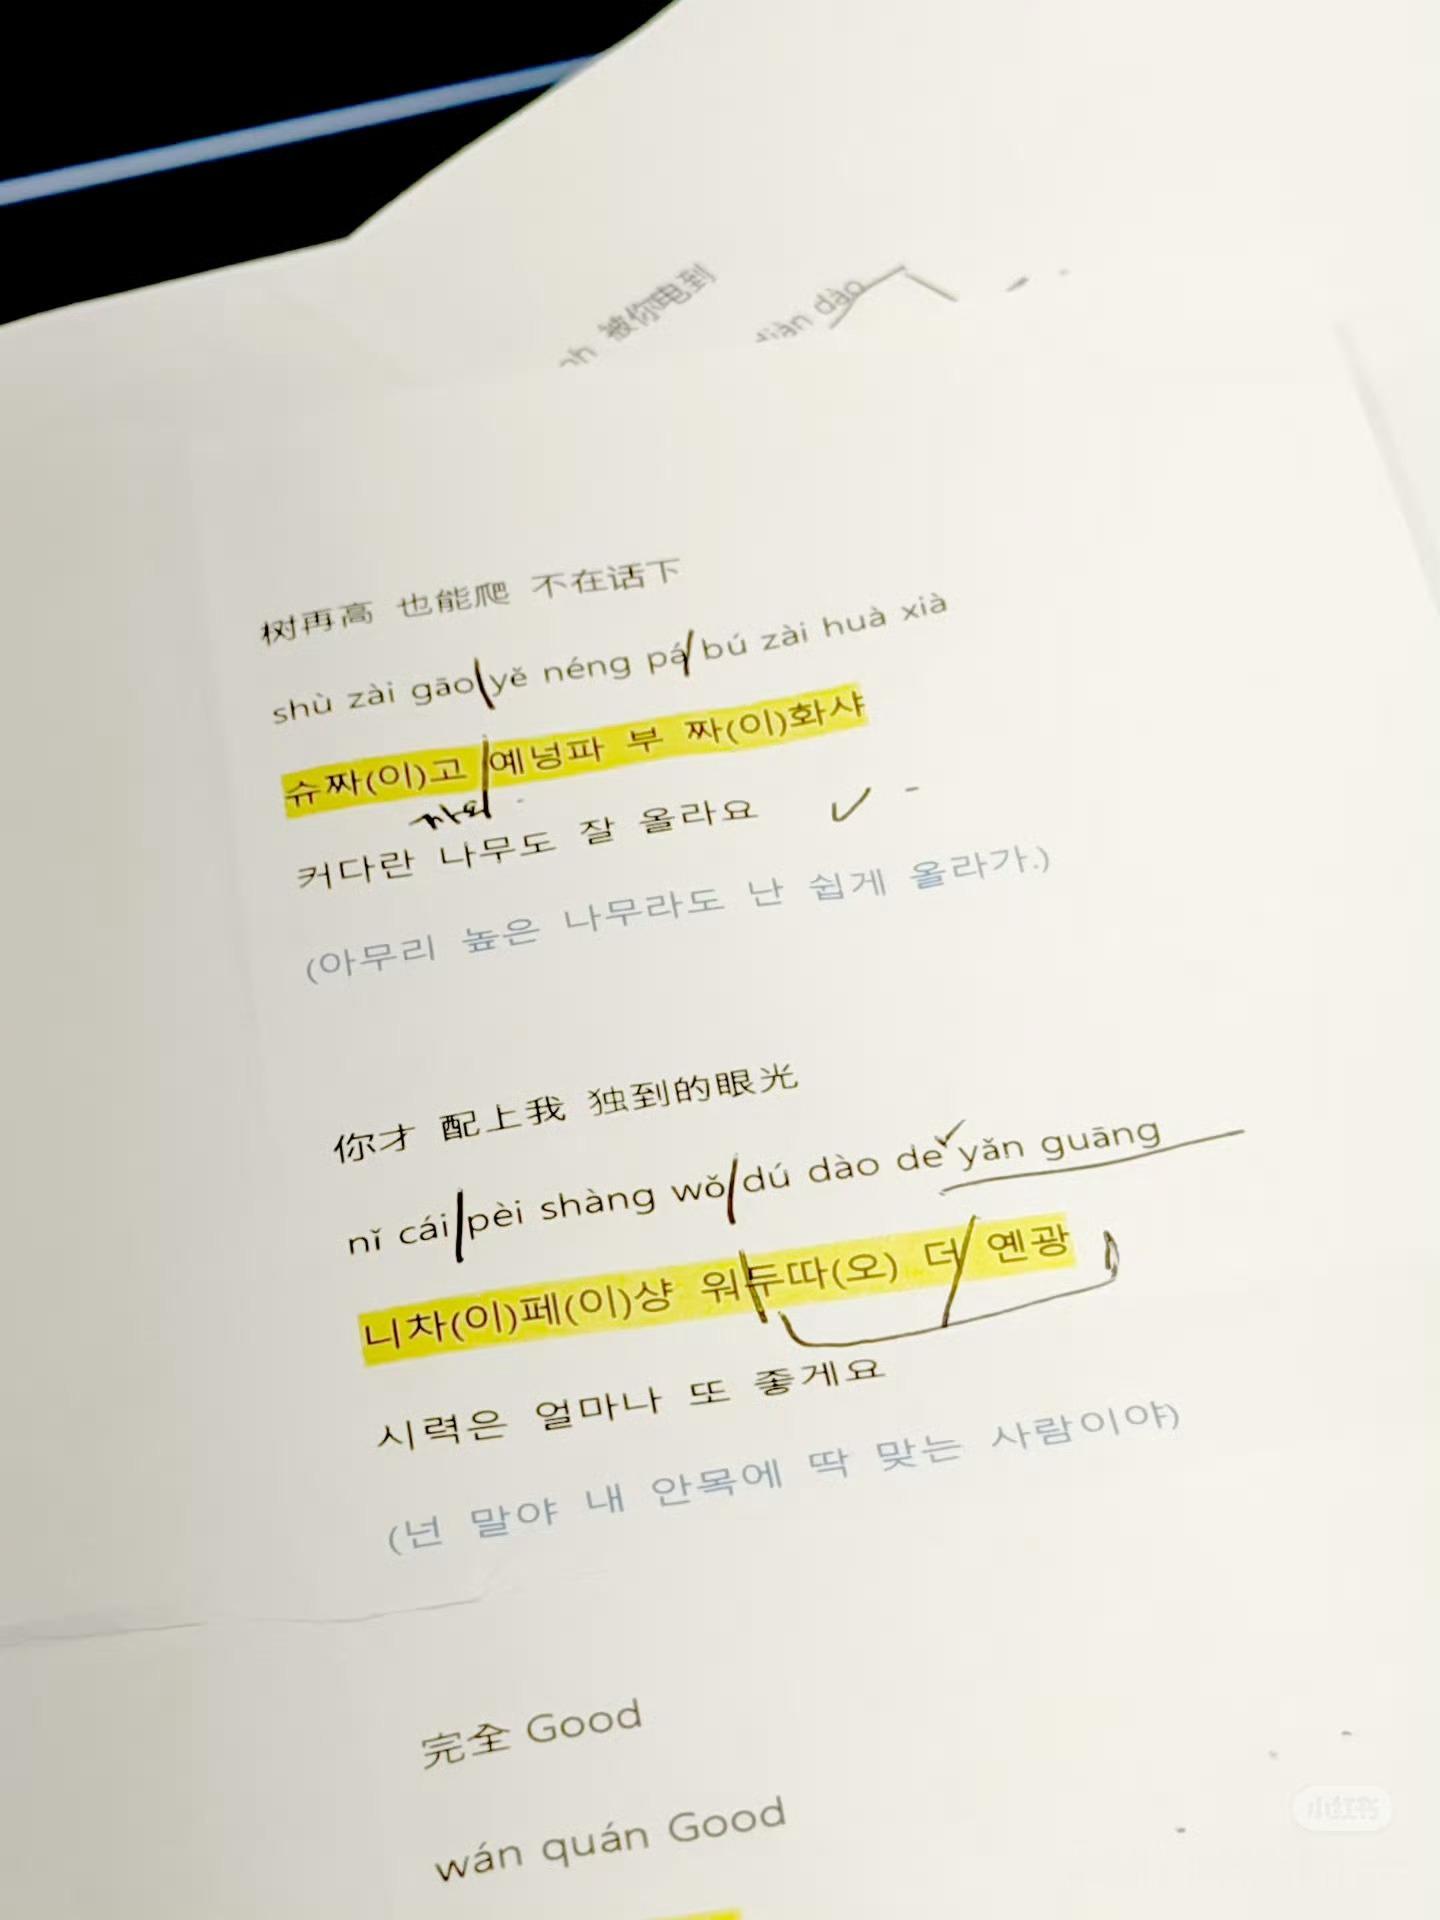 被你电到
diàn dào
树再高 也能爬 不在话下
shù zài gāo yě néng pá bú zài huà xià
슈짜(이)고 예넝파 부 짜(이)화샤
커다란 나무도 잘 올라요
(아무리 높은 나무라도 난 쉽게 올라가.)
你才 配上我 独到的眼光
nǐ cái pèi shàng wǒ dú dào de yǎn guāng
니차(이)페(이)샹 워두따(오) 더 옌광
시력은 얼마나 또 좋게요
(넌 말야 내 안목에 딱 맞는 사람이야)
完全 Good
wán quán Good
小红书